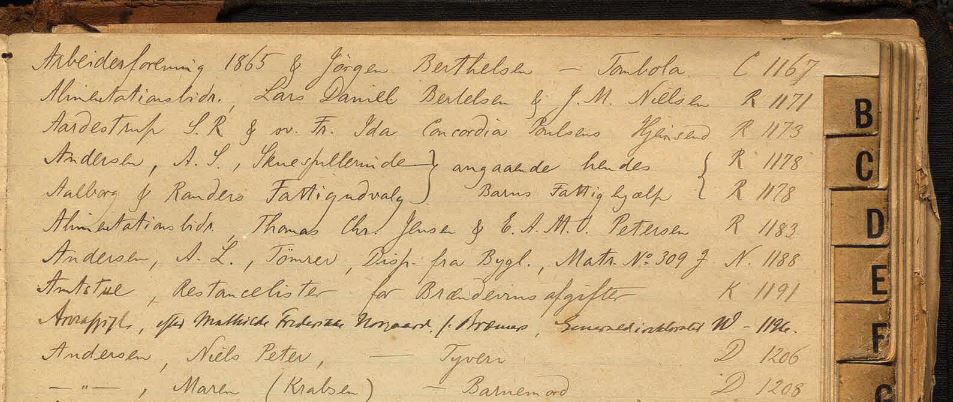 Arbeiderforening 1865 & Jörgen Berthelsen — Tombola C 1167
Alimentationsbidr., Lars Daniel Bertelsen & J. M. Nielsen R 1171
Aardestrup S. R & ov. Fr. Ida Concordia Poulsens R 1173
Andersen, A. S., Skuespillerinde } angaaende hendes { R 1178
Aalborg & Randers Fattigudvalg } Barns Fattighjælp { R 1178
Alimentationsbidr., Thomas Chr. Jensen & E. A. M. J. Petersen R 1183
Andersen, A. L., Tömrer, Disp. fra Bygl., Matr. No. 309 J N. 1188
Amtstue, Restancelister for Brændevinsafgifter K 1191
efter Mathilde W - 1196.
Andersen, Niels Peter, — Tyveri D 1206
— " —, Maren (Krabsen) — Barnemord D 1208
B
C
D
E
F
G